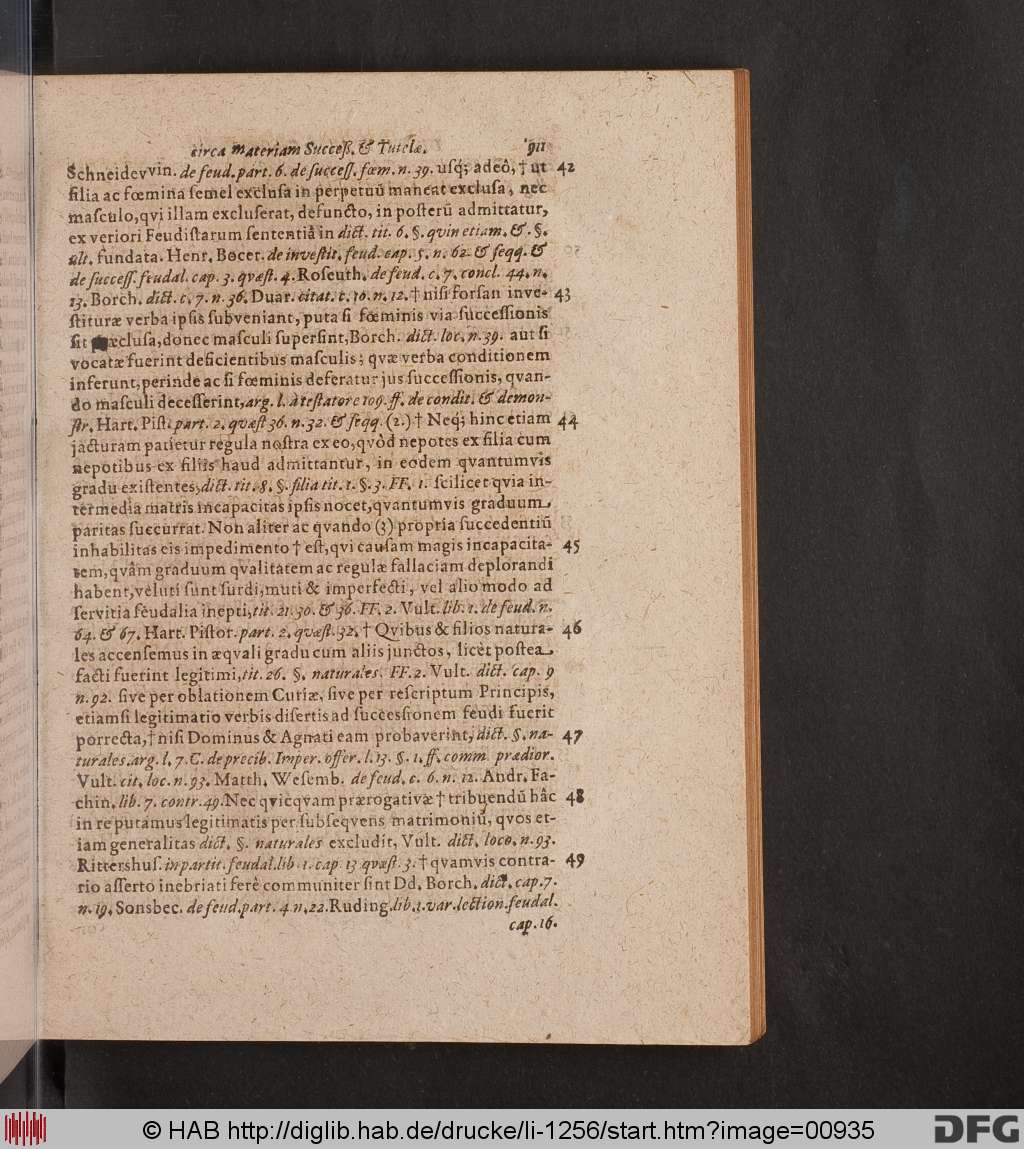 circa Materiam Succeß. & Tutelæ. 911
Schneidevvin. de feud. part. 6. de succeſſ. fœm. n. 39. uſq́; adeô, † ut 42
filia ac fœmina ſemel excluſa in perpetuũ maneat excluſa, nec
maſculo, qvi illam excluſerat, defuncto, in poſterũ admittatur,
ex veriori Feudiſtarum ſententiâ in dict. tit. 6. §. quin etiam. &. §.
ult. fundata. Henr. Bocer. de inveſtit. feud. cap. 5. n. 62. & ſeqq. &
de ſucceſſ. feudal. cap. 3. quæſt. 4. Roſeuth. de feud. c. 7. concl. 44. n.
13. Borch. dict. c. 7. n. 36. Duar. citat. c. 10. n. 12. † niſi forſan inve- 43
ſtituræ verba ipſis ſubveniant, puta ſi fœminis via ſucceſſionis
ſit præcluſa, donec maſculi ſuperſint, Borch. dict. loc. n. 39. aut ſi
vocatæ fuerint deficientibus maſculis; qvæ verba conditionem
inferunt, perinde ac ſi fœminis deferatur jus ſucceſſionis, qvan-
do maſculi deceſſerint, arg. l. à teſtatore 109. ff. de condit. & demon-
ſtr. Hart. Piſt. part. 2. quæſt 36. n. 32. & ſeqq. (2.) † Neq́; hinc etiam 44
jacturam patietur regula noſtra ex eo, qvòd nepotes ex filia cum
nepotibus ex filiis haud admittantur, in eodem qvantumvis
gradu exiſtentes, dict. tit. 8. §. filia tit. 1. §. 3. FF. 1. ſcilicet qvia in-
termedia matris incapacitas ipſis nocet, qvantumvis graduum
paritas ſuccurrat. Non aliter ac qvando (3) propria ſuccedentiũ
inhabilitas eis impedimento † eſt, qvi cauſam magis incapacita- 45
tem, qvâm graduum qvalitatem ac regulæ fallaciam deplorandi
habent, veluti ſunt ſurdi, muti & imperfecti, vel alio modo ad
ſervitia feudalia inepti, tit. 21. 30. & 36. FF. 2. Vult. lib. 1. de feud. n.
64. & 67. Hart. Piſtor. part. 2. quæſt. 32. † Qvibus & filios natura- 46
les accenſemus in æqvali gradu cum aliis junctos, licèt poſtea
facti fuerint legitimi, tit. 26. §. naturales. FF. 2. Vult. dict. cap. 9
n. 92. ſive per oblationem Curiæ, ſive per reſcriptum Principis,
etiamſi legitimatio verbis diſertis ad ſucceſſionem feudi fuerit
porrecta, † niſi Dominus & Agnati eam probaverint, dict. §. na- 47
turales. arg. l. 7. C. de precib. Imper. offer. l. 13. §. 1. ff. comm. prædior.
Vult. cit. loc. n. 93. Matth. Weſemb. de feud. c. 6. n. 12. Andr. Fa-
chin. lib. 7. contr. 49. Nec qvicqvam prærogativæ † tribuendũ hâc 48
in re putamus legitimatis per ſubſeqvens matrimoniũ, qvos et-
iam generalitas dict. §. naturales excludit, Vult. dict. loco. n. 93.
Rittershuſ. in partit. feudal. lib. 1. cap. 13 quæſt. 3. † qvamvis contra- 49
rio aſſerto inebriati ferè communiter ſint Dd. Borch. dict. cap. 7.
n. 19. Sonsbec. de feud. part. 4 n. 22. Ruding. lib. 1. var. lection. feudal.
cap. 16.
© HAB http://diglib.hab.de/drucke/li-1256/start.htm?image=00935
DFG